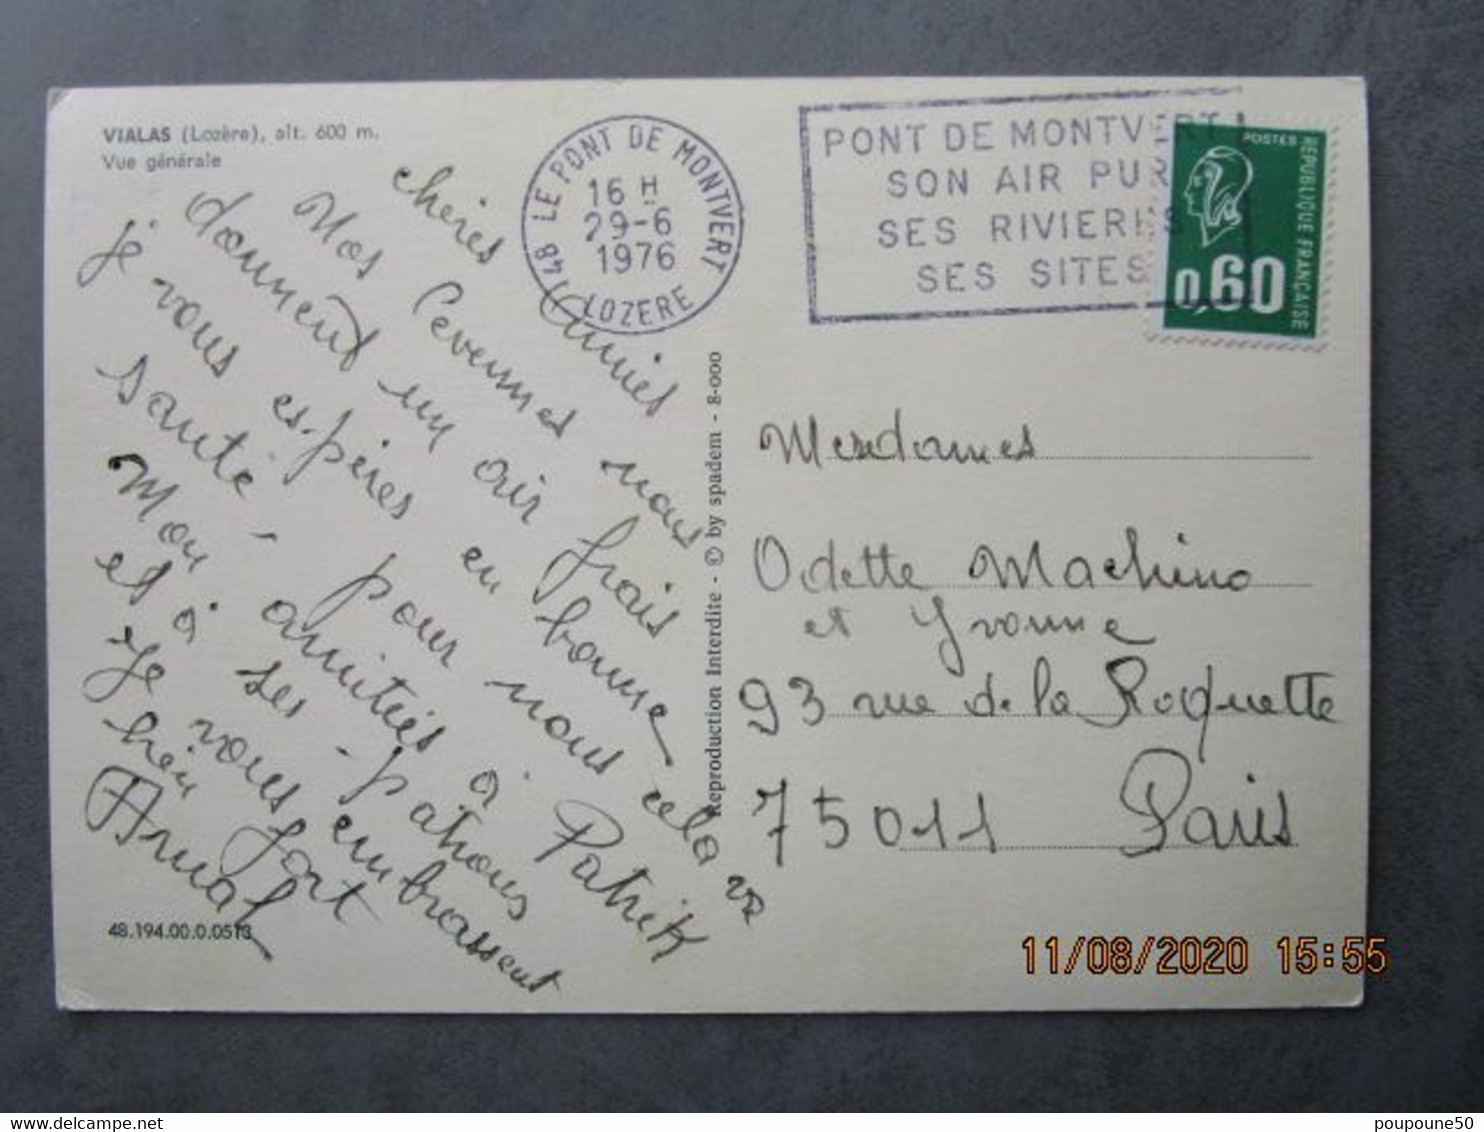 VIALAS (Lozère), alt. 600 m.
Vue générale
chères Amies
Nos Cevennes nous
donnent un air frais
je vous espères en bonne
santé - pour nous cela va
Mon amitiés à Patrik
et à ses - patrons
Je vous embrassent
bien fort
Arnal
48.194.00.0.0513
Reproduction Interdite - © by spadem - 8-000
48 LE PONT DE MONTVERT
16 H
29-6
1976
LOZERE
PONT DE MONTVERT
SON AIR PUR
SES RIVIERES
SES SITES
POSTES
REPUBLIQUE FRANÇAISE
0,60
Mesdames
Odette Machino
et Yvonne
93 rue de la Roquette
75011 Paris
11/08/2020 15:55
poupoune50